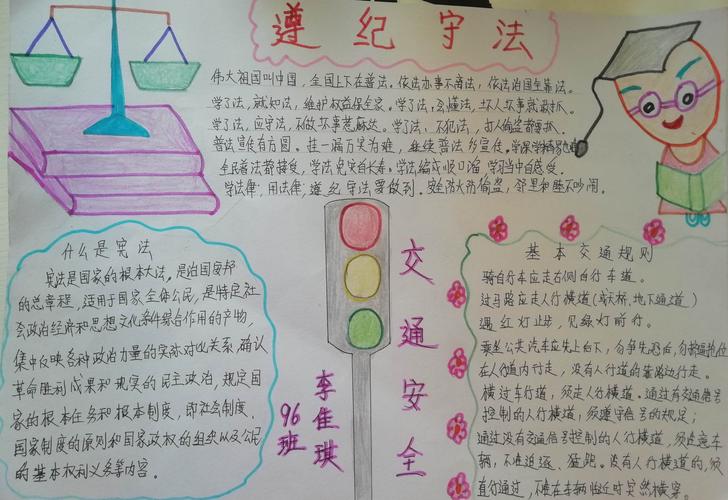 遵纪守法
伟大祖国叫中国，全国上下在普法。依法办事不离法，依法治国至靠法。
学了法，就知法，维护权益保全家。学了法，会懂法，坏人坏事就敢抓。
学了法，应守法，不做坏事惹麻达。学了法，不犯法，打人偷盗都要抓。
普法宣传有方圆。挂一漏万实为难，继续普法多宣传。
全民普法都接受，学法免灾白长寿。学法编成顺口溜，学习当中自感受。
学法律，用法律，遵纪守法要做到。安全防火防偷盗，邻里和睦不吵闹。
什么是宪法
宪法是国家的根本大法，是治国安邦
的总章程，适用于国家全体公民，是特定社
会政治经济和思想文化条件综合作用的产物，
集中反映各种政治力量的实际对比关系，确认
革命胜利成果和现实的民主政治，规定国
家的根本任务和根本制度，即社会制度、
国家制度的原则和国家政权的组织以及公民
的基本权利义务等内容。
交通安全
李佳琪
96班
基本交通规则
骑自行车应走右侧自行车道。
过马路应走人行横道（或天桥、地下通道）
遇红灯止步，见绿灯前行。
乘坐公共汽车应先上后下，勿争先恐后，
在人行道内行走，没有人行道的靠路边行走。
横过车行道，须走人行横道。通过有交通信号
控制的人行横道，须遵守信号的规定；
通过没有交通信号控制的人行横道，须注意车
辆，不准追逐、猛跑。没有人行横道的，须
直行通过，不准在车辆临近时突然横穿。